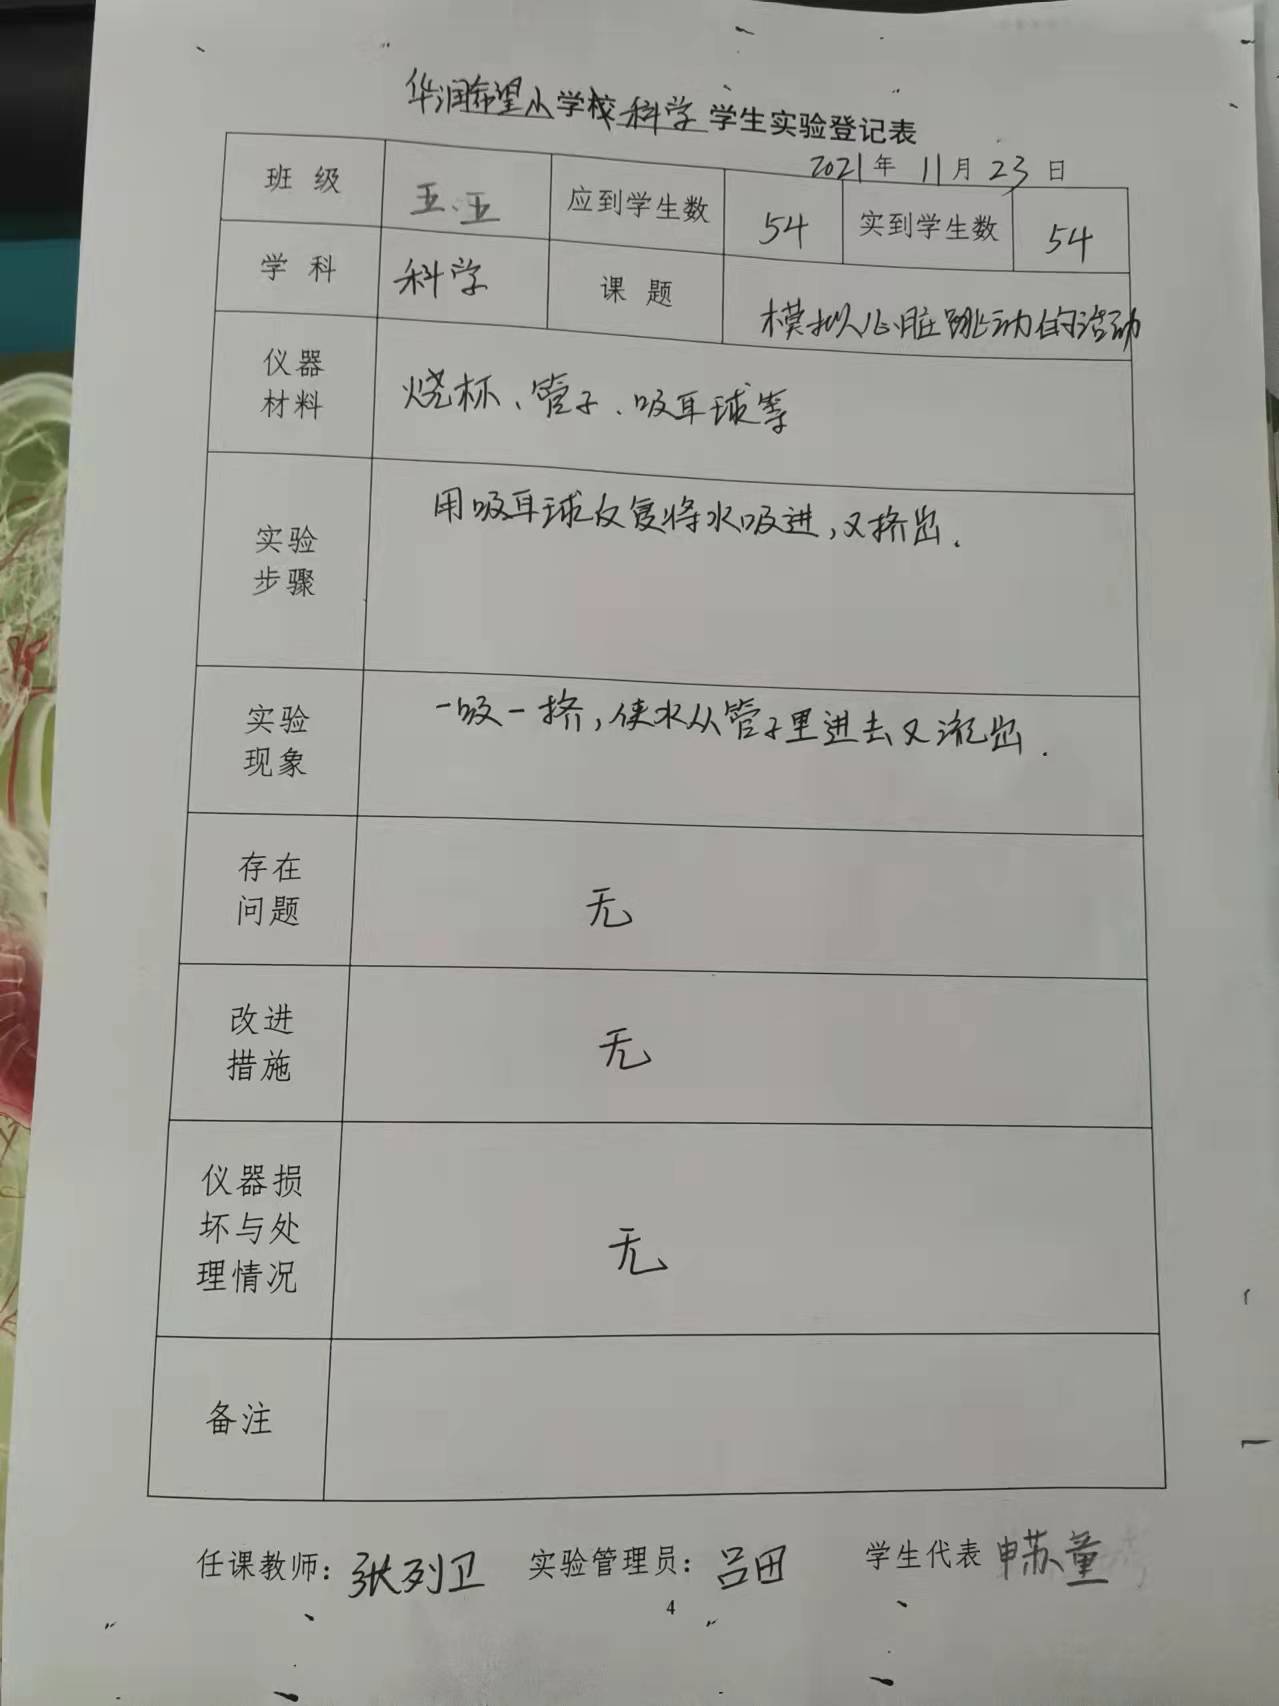 华润希望小学校科学学生实验登记表
2021年11月23日
班级 五、五 应到学生数 54 实到学生数 54
学科 科学 课题 模拟心脏跳动的活动
仪器
材料
烧杯、管子、吸耳球等
实验
步骤
用吸耳球反复将水吸进,又挤出.
实验
现象
一吸一挤,使水从管子里进去又流出.
存在
问题
无
改进
措施
无
仪器损
坏与处
理情况
无
备注
任课教师:张列卫 实验管理员:吕田 学生代表 申苏童
4